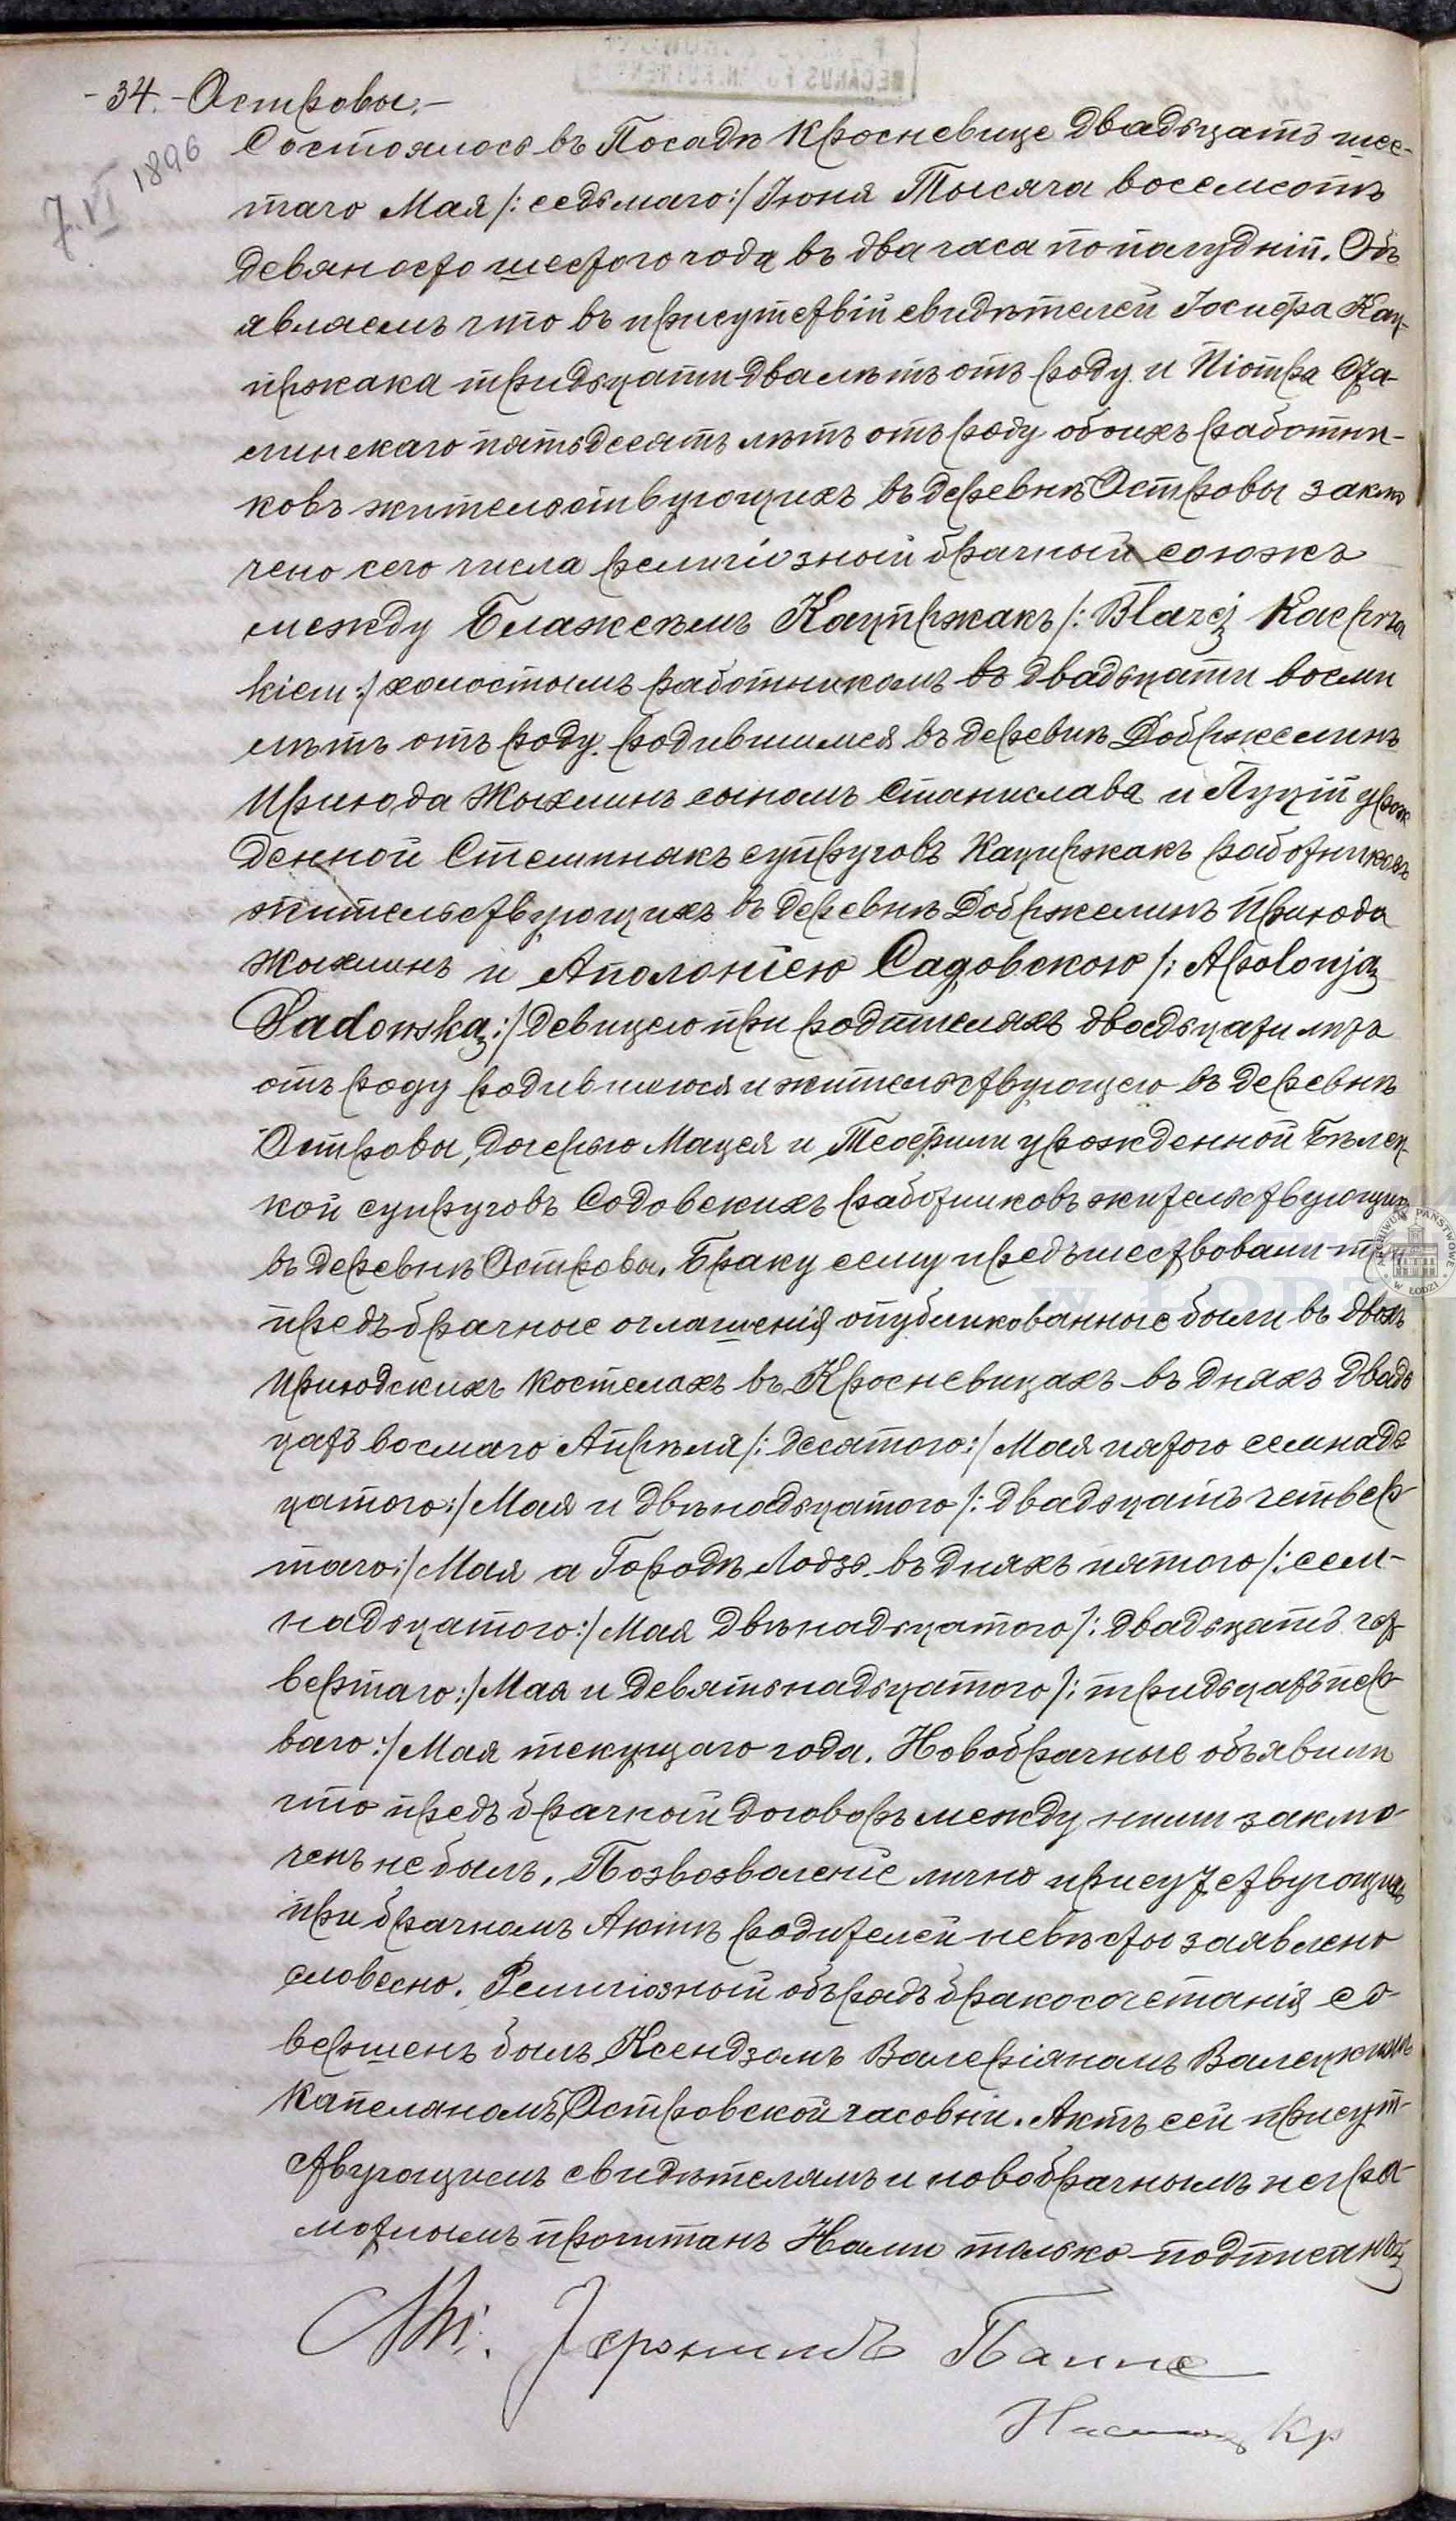 -34.- Островы.-
7.VI 1896
Состоялось въ Посадѣ Кросневице двадцать шес-
таго Мая /: седьмаго :/ Іюня Тысяча восемсотъ
девяносто шестого года въ два часа пополудніи. Объ
являемъ что въ присутствіи свидѣтелей Іосифа Кац-
пржака тридцати два лѣтъ отъ роду и Піотра
пятьдесятъ лѣтъ отъ роду обоихъ работни-
ковъ жительствующихъ въ деревнѣ Островы заклю
чено сего числа религіозный брачный союжъ
между Блажеѣмъ Кацпржакъ /: Błażej Kacprza
kiem :/ холостымъ работникомъ въ двадцати восми
лѣтъ отъ роду родившимся въ деревнѣ Добржелинъ
Прихода Жыхлинъ сыномъ Станислава и Луціи урож
денной Стемпнякъ супруговъ Кацпржакъ работниковъ
жительствующихъ въ деревнѣ Добржелинъ Прихода
Жыхлинъ и Аполоніею Садовскою /: Apolonją
Sadowską :/ девицею при родителяхъ двадцати лѣтъ
отъ роду родившеюся и жительствующею въ деревнѣ
Островы, дочерью Мацея и Теофили урожденной Бѣлец-
кой супруговъ Садовскихъ работниковъ жительствующихъ
въ деревнѣ Островы. Браку сему предъшествовали три
предъбрачные оглашенія опубликованные были въ двохъ
Приходскихъ костелахъ въ Кросневицахъ въ дняхъ двадь
цать восмаго Апрѣля /: десятого :/ Мая пятого семнадь
цатого :/ Мая и двѣнадьцатого /: двадцать четвер-
таго :/ Мая а Городѣ Лодзь въ дняхъ пятого /: сем-
надьцатого :/ Мая двѣнадьцатого /: двадцать чет
вертаго :/ Мая и девятьнадьцатого /: тридцать пер-
ваго :/ Мая текущаго года. Новобрачные объявили
что предъбрачный договоръ между ними заклю-
ченъ не былъ. Позвозволеніе лично присутствующихъ
при брачномъ Актѣ родителей невѣсты заявлено
словесно. Религіозный обърядъ бракосочетанія со-
вершенъ былъ Ксендзомъ Валеріяномъ
Капеляномъ Островской часовни. Актъ сей присут-
ствующимъ свидѣтелямъ и новобрачнымъ негра-
мотнымъ прочитанъ Нами только подписанъ